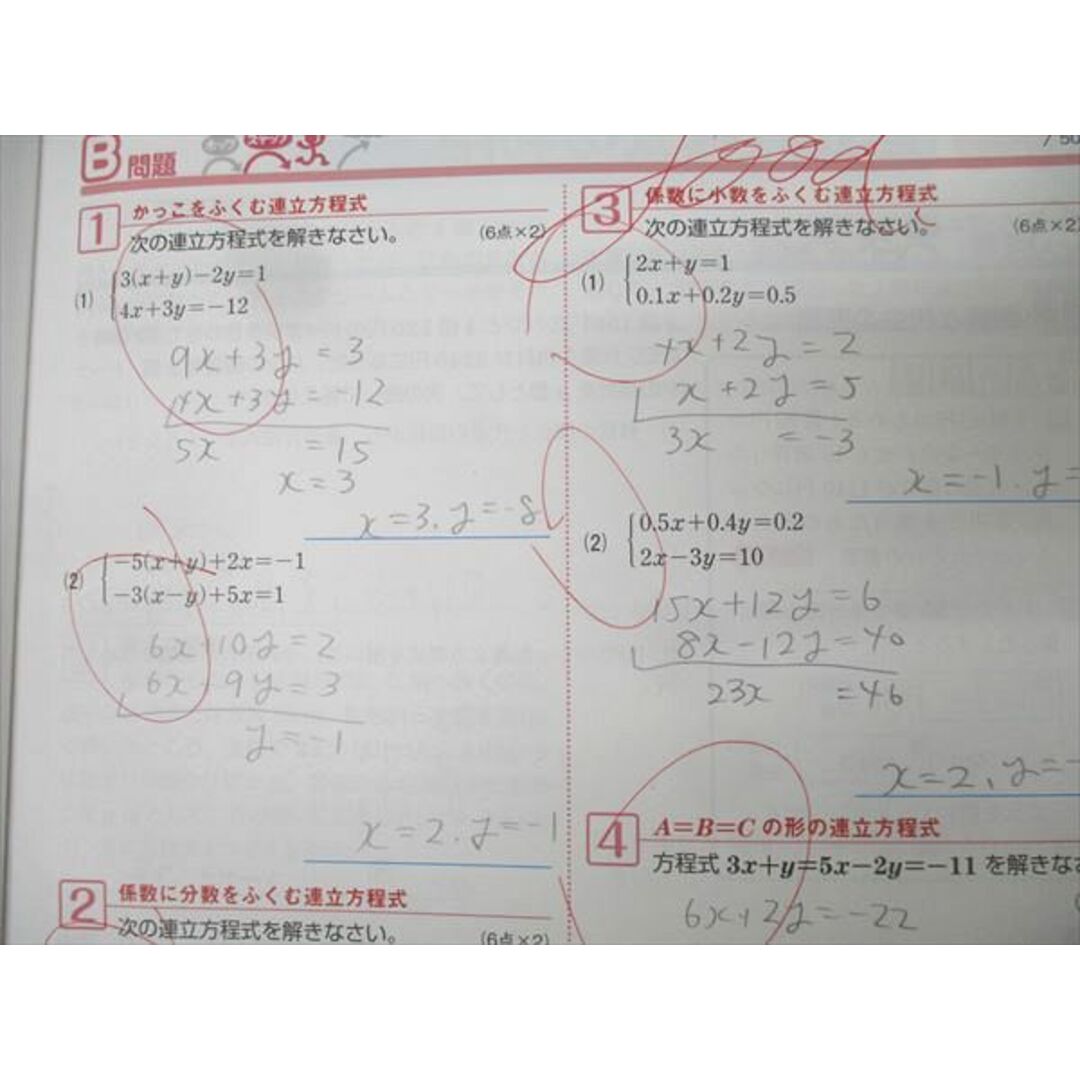 B 問題
/50
1 かっこをふくむ連立方程式
次の連立方程式を解きなさい。 (6点×2)
(1) 3(x+y)-2y=1
4x+3y=-12
9x+3y=3
4x+3y=-12
5x =15
x=3
x=3, y=-8
(2) -5(x+y)+2x=-1
-3(x-y)+5x=1
6x+10y=2
6x+9y=3
y=-1
x=2, y=-1
2 係数に分数をふくむ連立方程式
次の連立方程式を解きなさい。 (6点×2)
good
3 係数に小数をふくむ連立方程式
次の連立方程式を解きなさい。 (6点×2)
(1) 2x+y=1
0.1x+0.2y=0.5
4x+2y=2
x+2y=5
3x =-3
x=-1, y=
(2) 0.5x+0.4y=0.2
2x-3y=10
15x+12y=6
8x-12y=40
23x =46
x=2, y=-
4 A=B=C の形の連立方程式
方程式 3x+y=5x-2y=-11 を解きなさ
6x+2y=-22